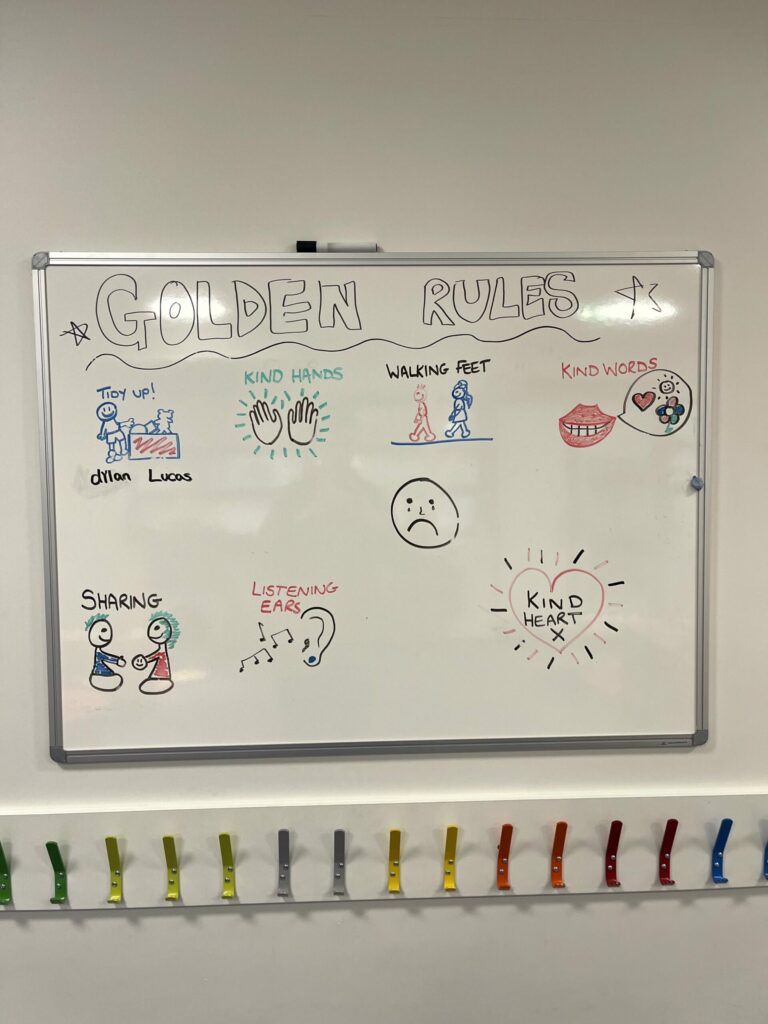 GOLDEN RULES
TIDY UP!
KIND HANDS
WALKING FEET
KIND WORDS
dylan Lucas
SHARING
LISTENING
EARS
KIND
HEART
X